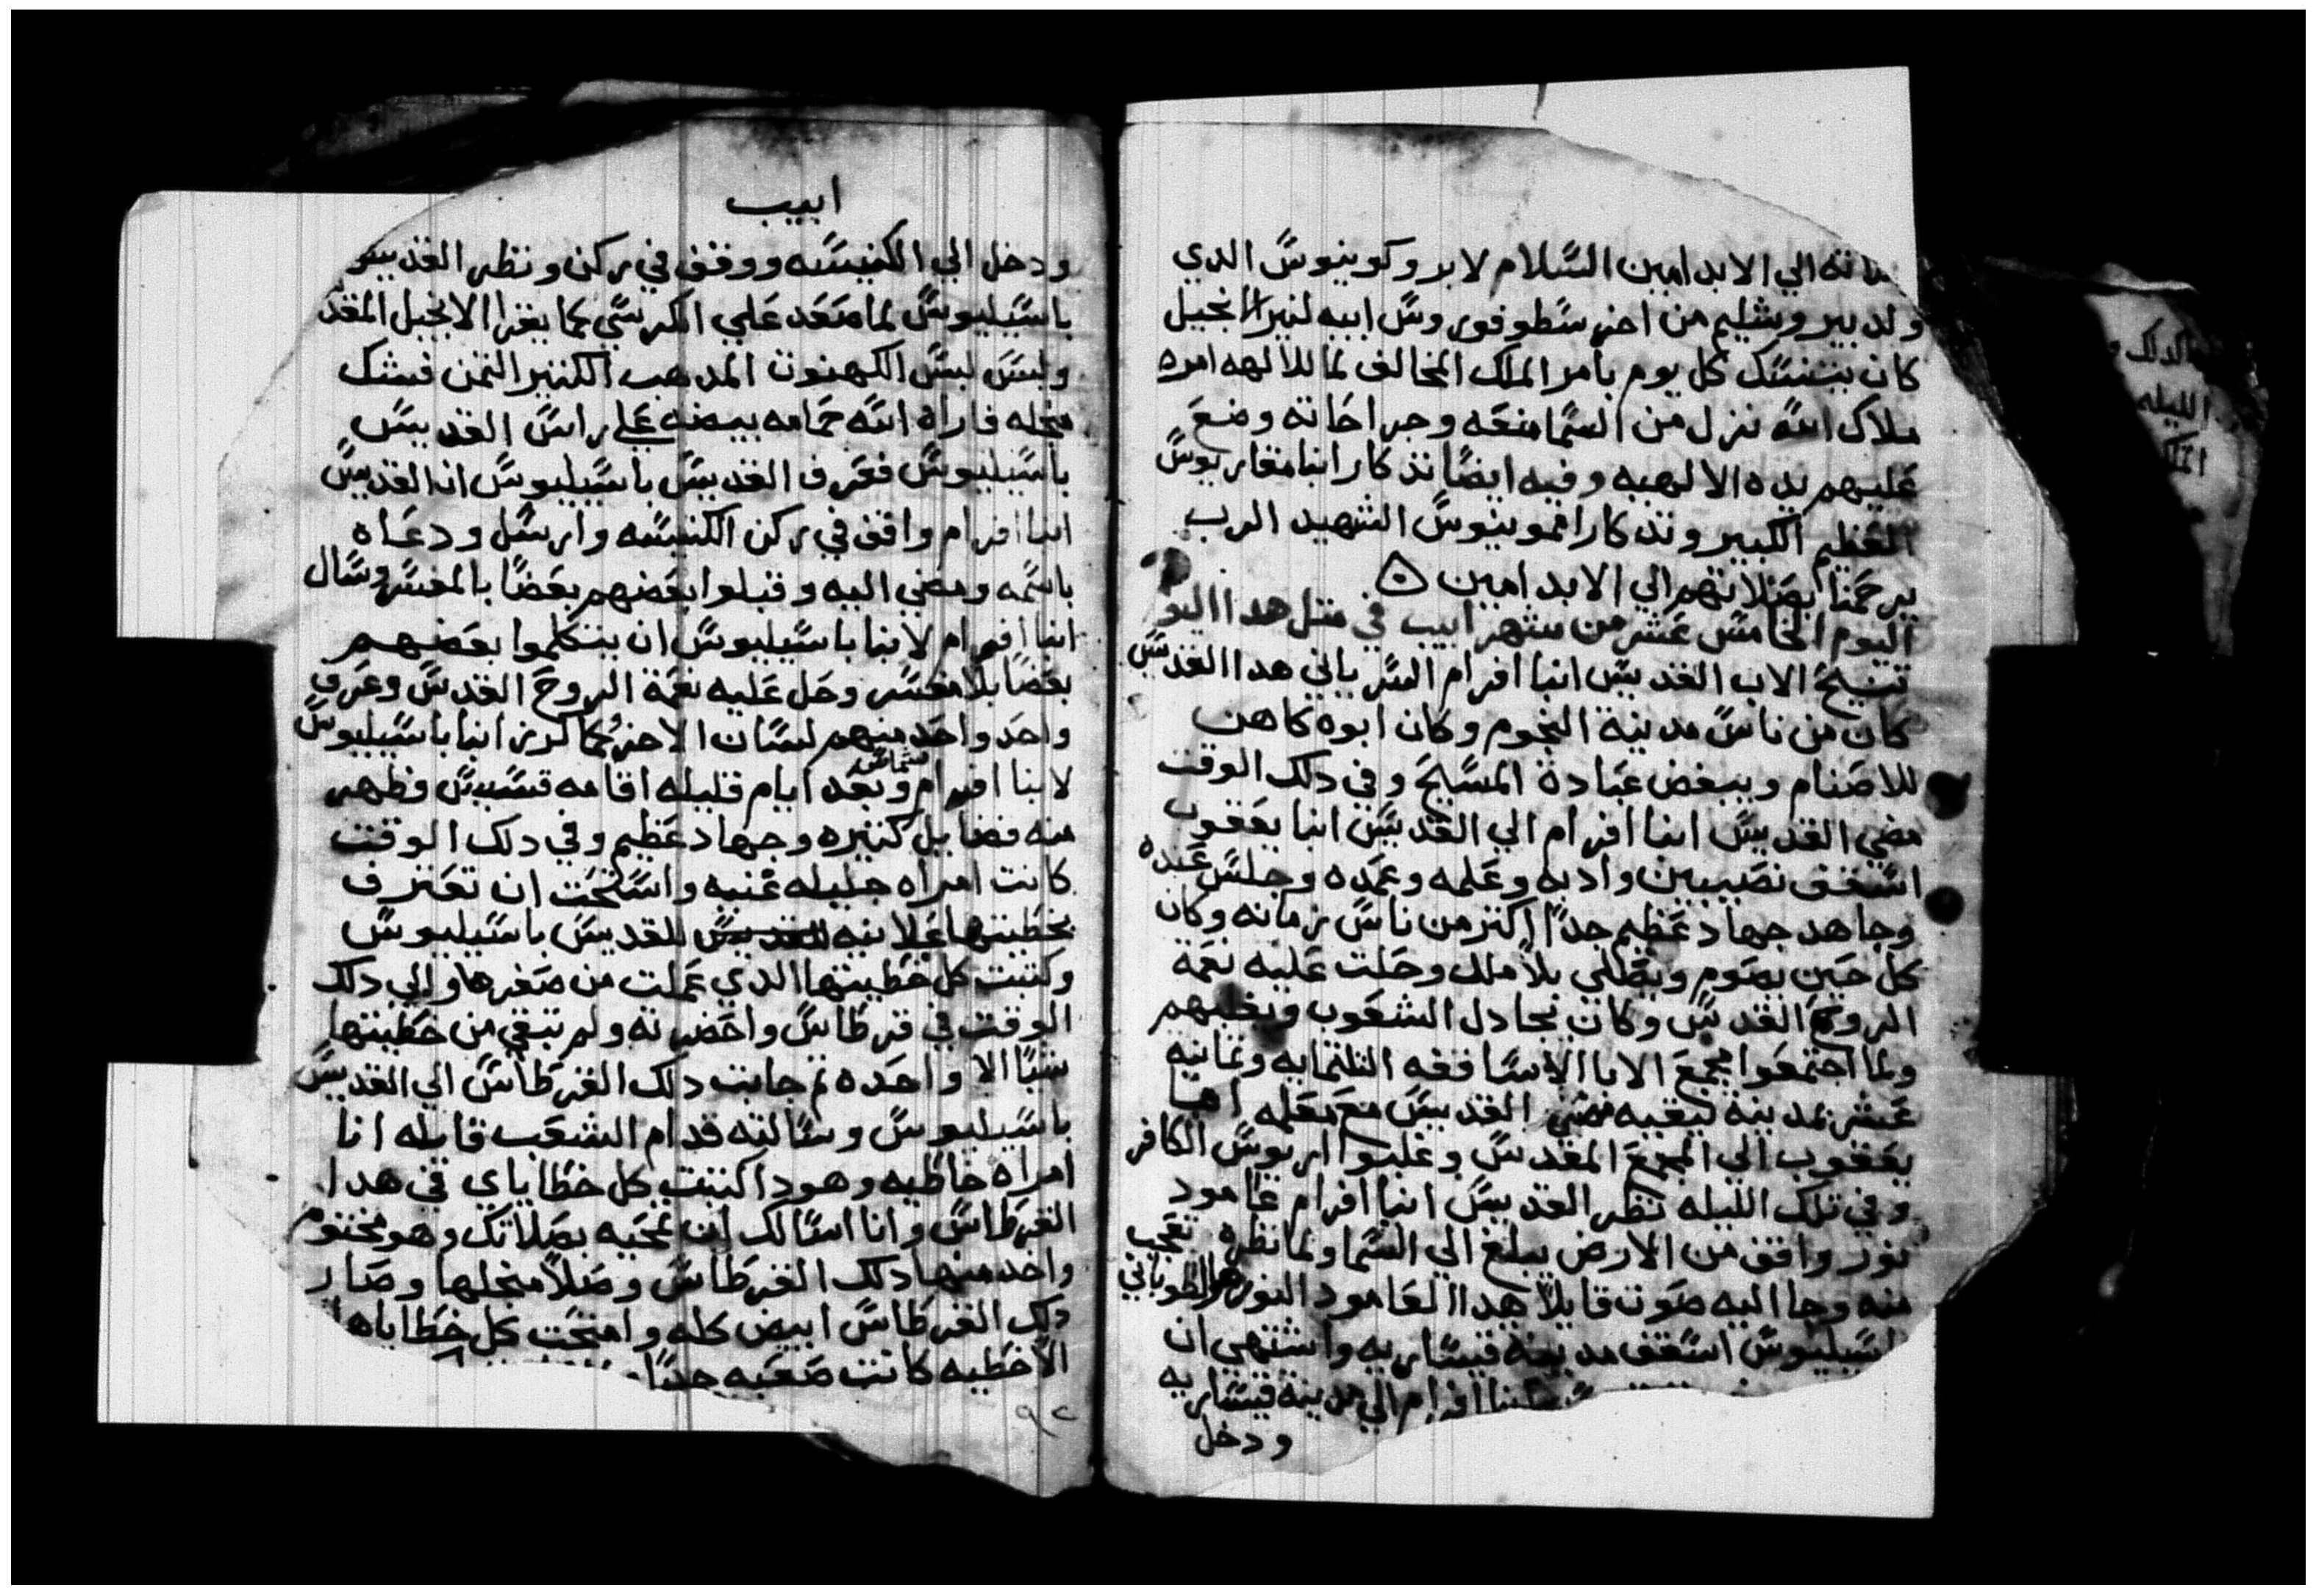 الي الابد امين السلام لابروكوبيوس الدي
ولد بيروشليم من اخرسطوفوروس ابيه لنير الانجيل
كان يتنسك كل يوم بامر الملك المخالف لما للالهه امره
ملاك الله نزل من السما منعه وجراحاته وضع
عليهم يده الالهيه وفيه ايضا تذكار انبا مقاريوس
العظيم الكبير وتدكار اموينوس الشهيد الرب
يرحمنا بصلاتهم الي الابد امين
اليوم الخامس عشر من شهر ابيب في متل هدا اليو
تنيح الاب القديس انبا افرام السرياني هدا القديس
كان من ناس مدينة النجوم وكان ابوه كاهن
للاصنام ويبغض عبادة المسيح وفي دلك الوقت
مضي القديس انبا افرام الي القديس انبا يعقوب
اسقف نصيبين وادبه وعلمه وعمده وجلس عنده
وجاهد جهاد عظيم جدا اكتر من ناس زمانه وكان
كل حين يصوم ويصلي بلا ملل وحلت عليه نعمة
الروح القدس وكان يجادل الشعوب ويغلبهم
ولما اجتمعوا مجمع الابا الاساقفه التلتمايه وتمانيه
عشر بمدينة نيقيه مضي القديس مع معلمه انبا
يعقوب الي المجمع المقدس وغلبوا اريوس الكافر
وفي تلك الليله نظر القديس انبا افرام عامود
نور واقف من الارض يبلغ الي السما ولما نظره تعجب
منه وجا اليه صوت قايلا هدا العامود النور هو الطوباني
باسيليوس اسقف مدينة قيساريه واشتهي ان
انبا افرام الي مدينة قيساريه
ودخل
ابيب
ودخل الي الكنيسه ووقف في ركن ونظر القديس
باسيليوس لما صعد علي الكرسي كما يقرا الانجيل المقد
ولبس لبس الكهنوت المدهب الكتير التمن فشك
مجله فاراه الله حمامه بيضه علي راس القديس
باسيليوس فعرف القديس باسيليوس ان القديس
انبا افرام واقف في ركن الكنيسه وارسل ودعاه
باسمه ومضي اليه وقبلوا بعضهم بعضا بالمفسر وسال
انبا افرام لانبا باسيليوس ان يتكلموا بعضهم
بعضا بلا مفسر وحل عليه نعمة الروح القدس وعرف
واحد واحد منهم لسان الاخر كما كرز انبا باسيليوس
لانبا افرام شماس وبعد ايام قليله اقامه قسيس وظهر
منه فضايل كتيره وجهاد عظيم وفي دلك الوقت
كانت امراه جليله غنيه واستحت ان تعترف
بخطيتها علانيه للقديس للقديس باسيليوس
وكتبت كل خطيتها الدي عملت من صغرها والي دلك
الوقت في قرطاس واحضرته ولم تبقي من خطيتها
شيا الا واحده تم جابت دلك القرطاس الي القديس
باسيليوس وسالته قدام الشعب قايله انا
امراه خاطيه وهودا كتبت كل خطاياي في هدا
القرطاس وانا اسالك ان تمحيه بصلاتك وهو مختوم
واخد منها دلك القرطاس وصلا منجلها وصار
دلك القرطاس ابيض كله وامتحت كل خطاياها
الا خطيه كانت صعبه جدا
٩٢